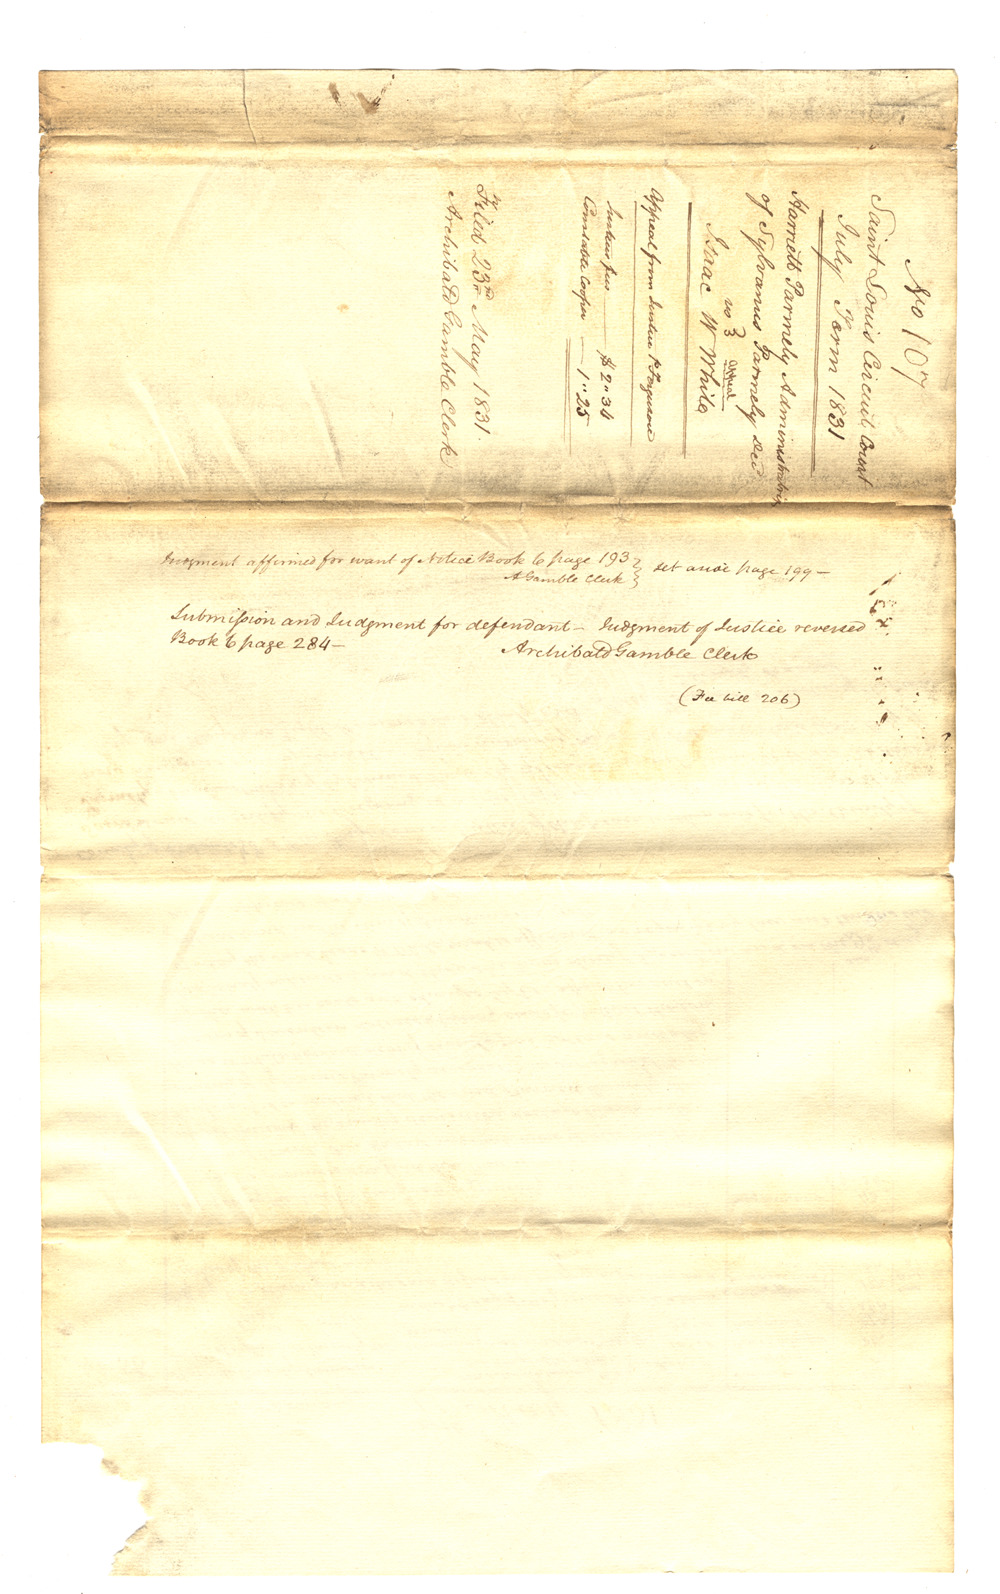 No 107
Saint Louis Circuit Court
July Term 1831
Harriett Parmely Administratrix
of Sylvanus Parmely decd
vs } appeal
Isaac W White
Appeal from Justice P. Ferguson
Justices fees — $2"34
Constable Cooper — 1"25
Filed 23rd May 1831
Archibald Gamble Clerk
Judgment affirmed for want of Notice Book 6 page 193 } set aside page 199—
A Gamble Clerk
Submission and Judgment for defendant— Judgment of Justice reversed
Book 6 page 284—
Archibald Gamble Clerk
(Fee bill 206)